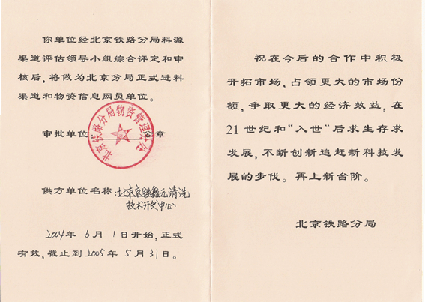 你单位经北京铁路分局料源
渠道评估领导小组综合评定和审
核后，将成为北京分局正式进料
渠道和物资信息网员单位。
审批单位 章
北京铁路分局物资管理
供方单位名称
技术开发中心
2004年6月1日开始，正式
有效，截止到2005年5月31日。
祝在今后的合作中积极
开拓市场，占领更大的市场份
额，争取更大的经济效益，在
21世纪和“入世”后求生存求
发展，不断创新追赶新科技发
展的步伐。再上新台阶。
北京铁路分局